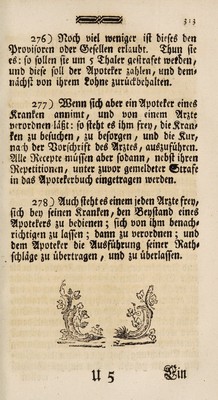 313
276) Noch viel weniger ist dieses den
Provisoren oder Gesellen erlaubt. Thun sie
es: so sollen sie um 5 Thaler gestrafet werden,
und diese soll der Apoteker zahlen, und dem-
nächst von ihrem Lohne zurückbehalten.
277) Wenn sich aber ein Apoteker eines
Kranken annimt, und von einem Arzte
verordnen läßt: so steht es ihm frey, die Kran-
ken zu besuchen, zu besorgen, und die Kur,
nach der Vorschrift des Arztes, auszuführen.
Alle Recepte müssen aber sodann, nebst ihren
Repetitionen, unter zuvor gemeldeter Strafe
in das Apotekerbuch eingetragen werden.
278) Auch steht es einem jeden Arzte frey,
sich bey seinen Kranken, den Beystand eines
Apotekers zu bedienen; sich von ihm benach-
richtigen zu lassen; dann zu verordnen; und
dem Apoteker die Ausführung seiner Rath-
schläge zu übertragen, und zu überlassen.
U 5
Ein